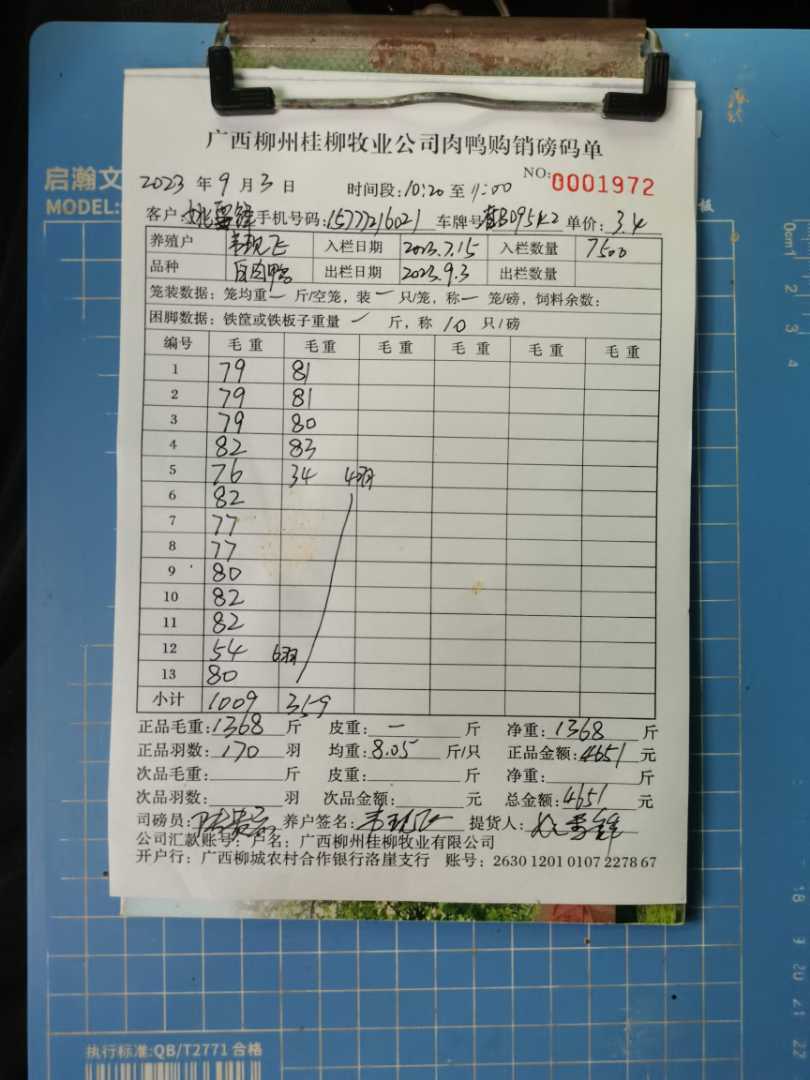 启瀚文
MODEL:
广西柳州桂柳牧业公司肉鸭购销磅码单
NO:0001972
2023 年 9 月 3 日 时间段:10:20 至 11:00
客户: 手机号码:15777216021 车牌号 B095K2 单价: 3.4
养殖户 入栏日期 2023.7.15 入栏数量 7500
品种 白肉鸭 出栏日期 2023.9.3 出栏数量
笼装数据:笼均重 一 斤/空笼,装 一 只/笼,称 一 笼/磅,饲料余数:
困脚数据:铁筐或铁板子重量 一 斤,称 10 只/磅
编号 毛重 毛重 毛重 毛重 毛重 毛重
1 79 81
2 79 81
3 79 80
4 82 83
5 76 34 4羽
6 82
7 77
8 77
9 80
10 82
11 82
12 54 6羽
13 80
小计 1009 359
正品毛重:1368 斤 皮重: 一 斤 净重:1368 斤
正品羽数:170 羽 均重:8.05 斤/只 正品金额:4651 元
次品毛重: 斤 皮重: 斤 净重: 斤
次品羽数: 羽 次品金额: 元 总金额:4651 元
司磅员: 养户签名: 提货人:
公司汇款账号:户名:广西柳州桂柳牧业有限公司
开户行:广西柳城农村合作银行洛崖支行 账号:2630 1201 0107 2278 67
执行标准:QB/T2771 合格
0cm 1 2 3 4
18 19 20 21 22